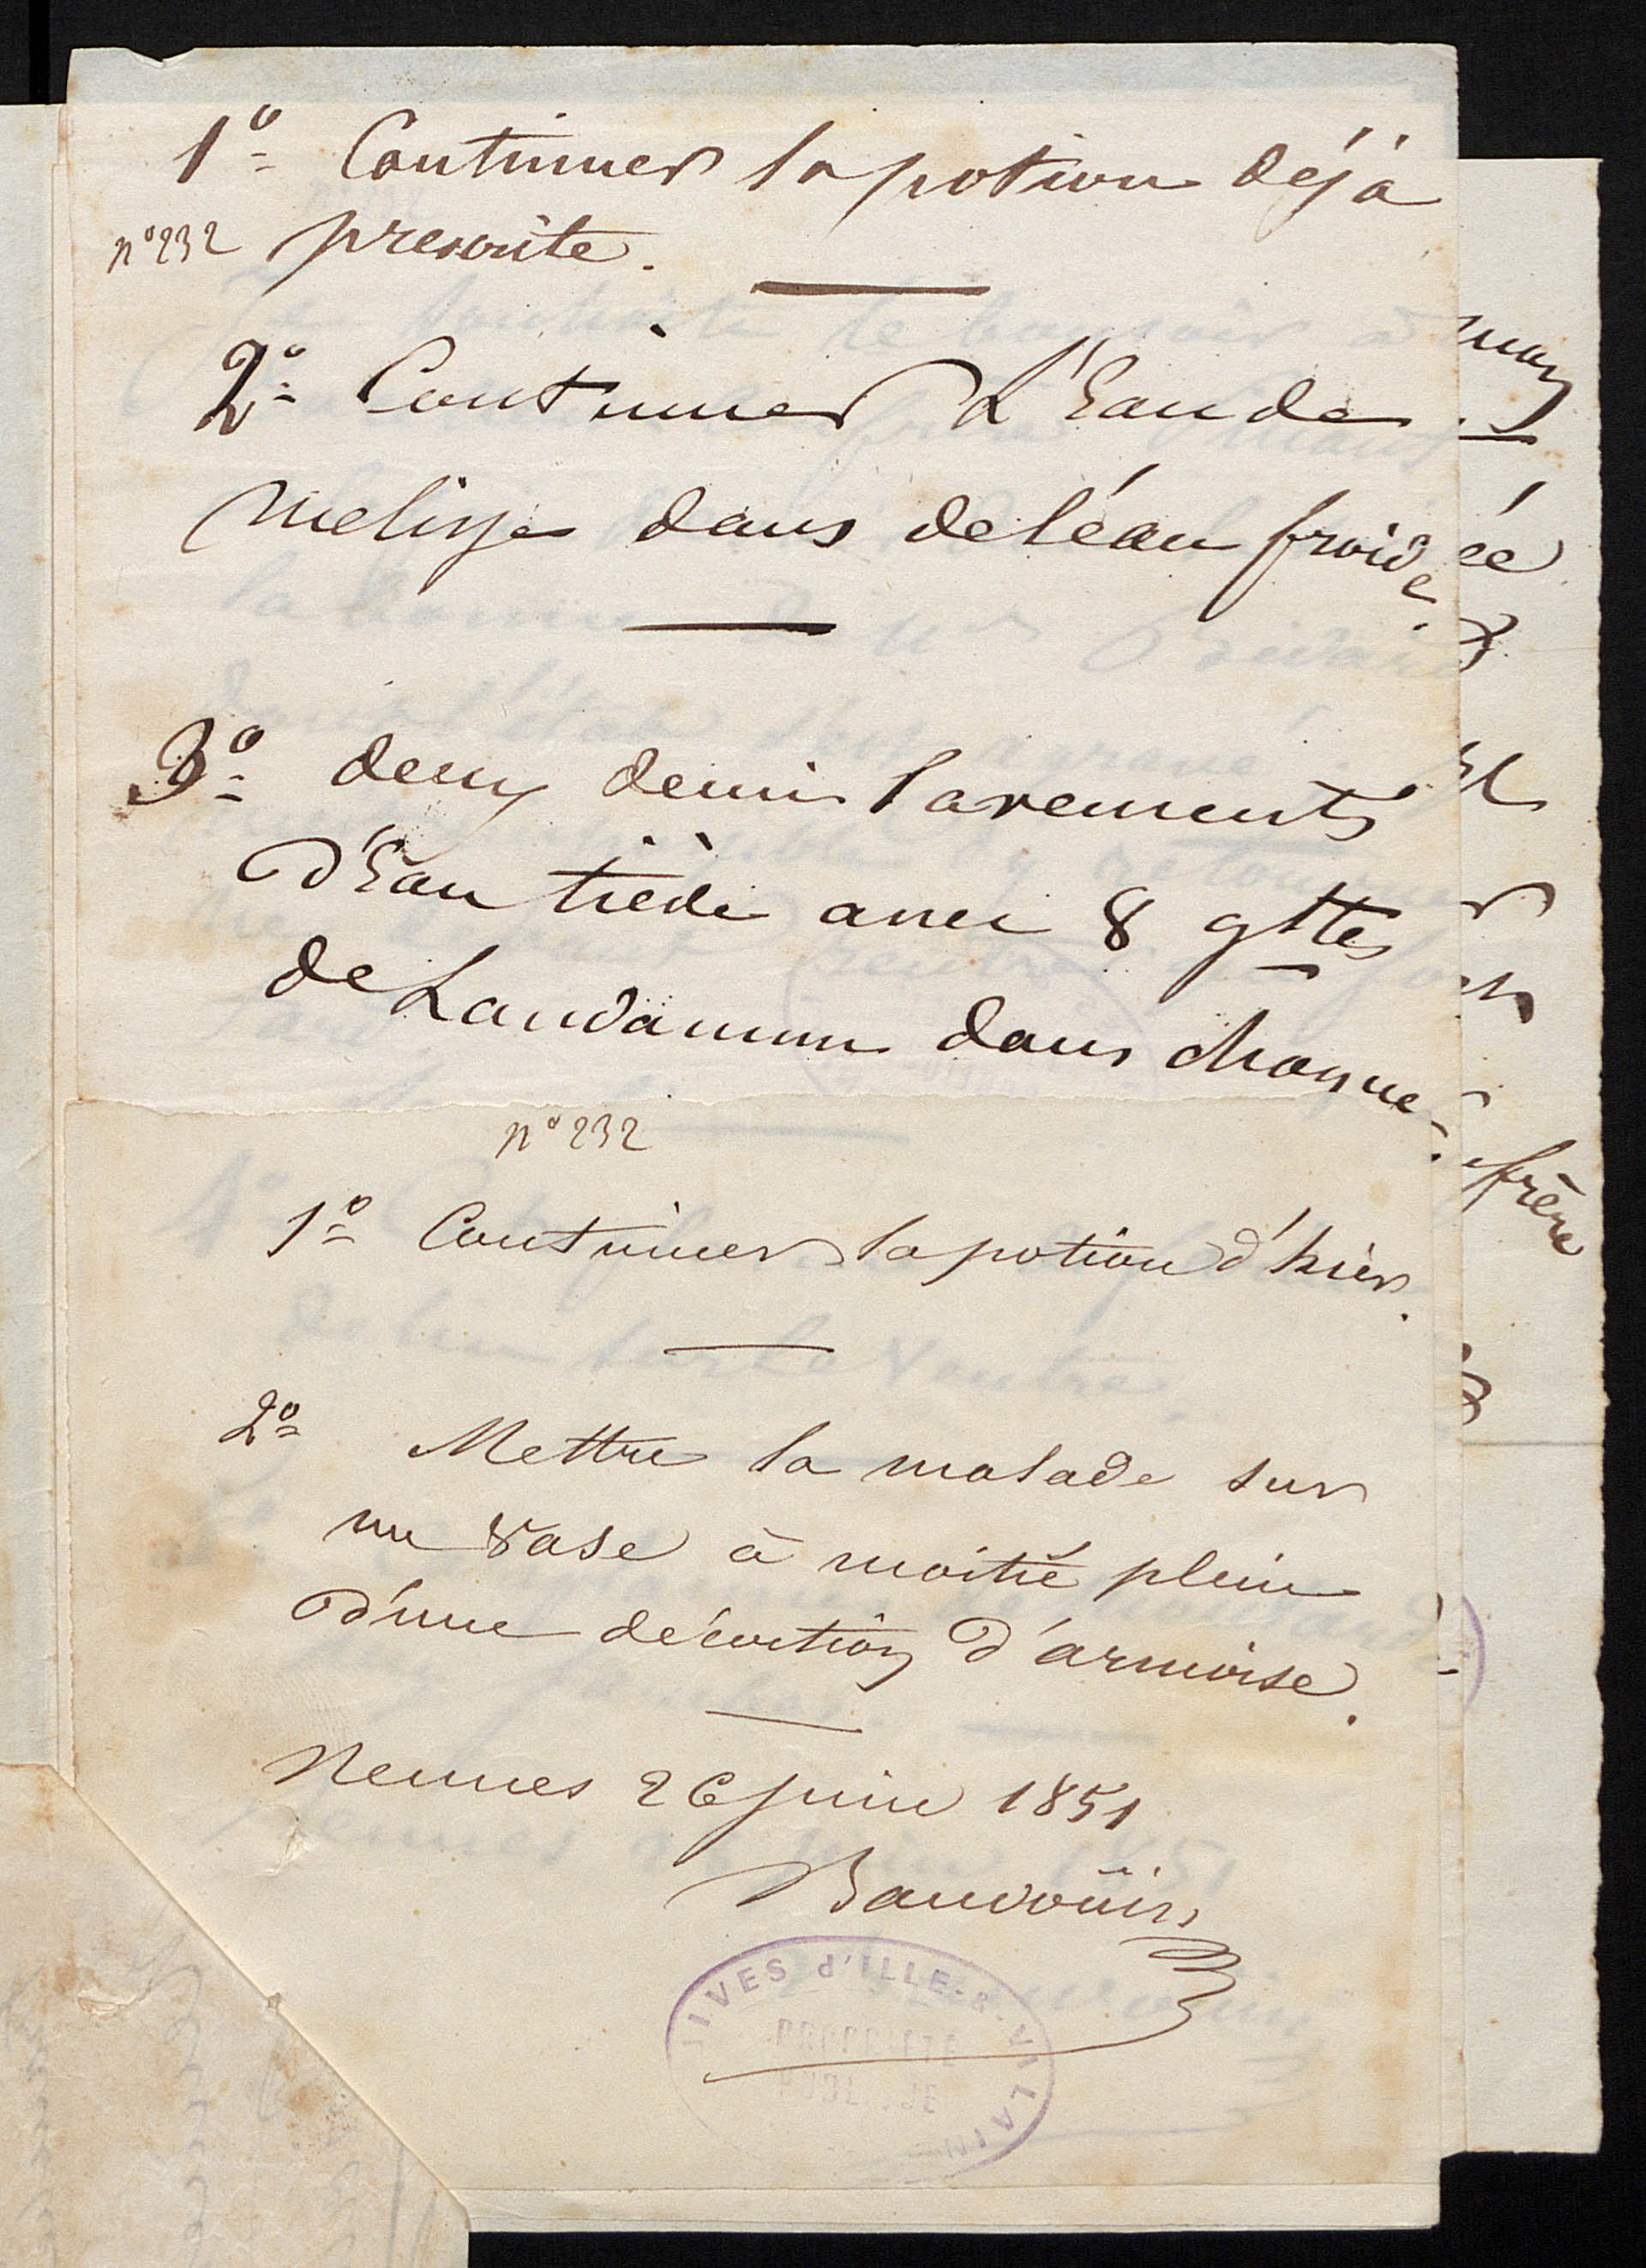 1º Continuer la potion déjà
nº 232 prescrite.
2º Continuer L'Eau de
Melisse dans de léau froide.
3º deux demi lavements
d'Eau tiède avec 8 gttes
de Laudanum dans chaque.
nº 232
1º Continuer la potion d'hier.
2º Mettre la malade sur
un vase à moitié plein
d'une décoction d'armoise.
Rennes 26 juin 1851
Baudoüin
IVES d'ILLE-&-VILAIN
PROPRIETE
PUBLIQUE
frère